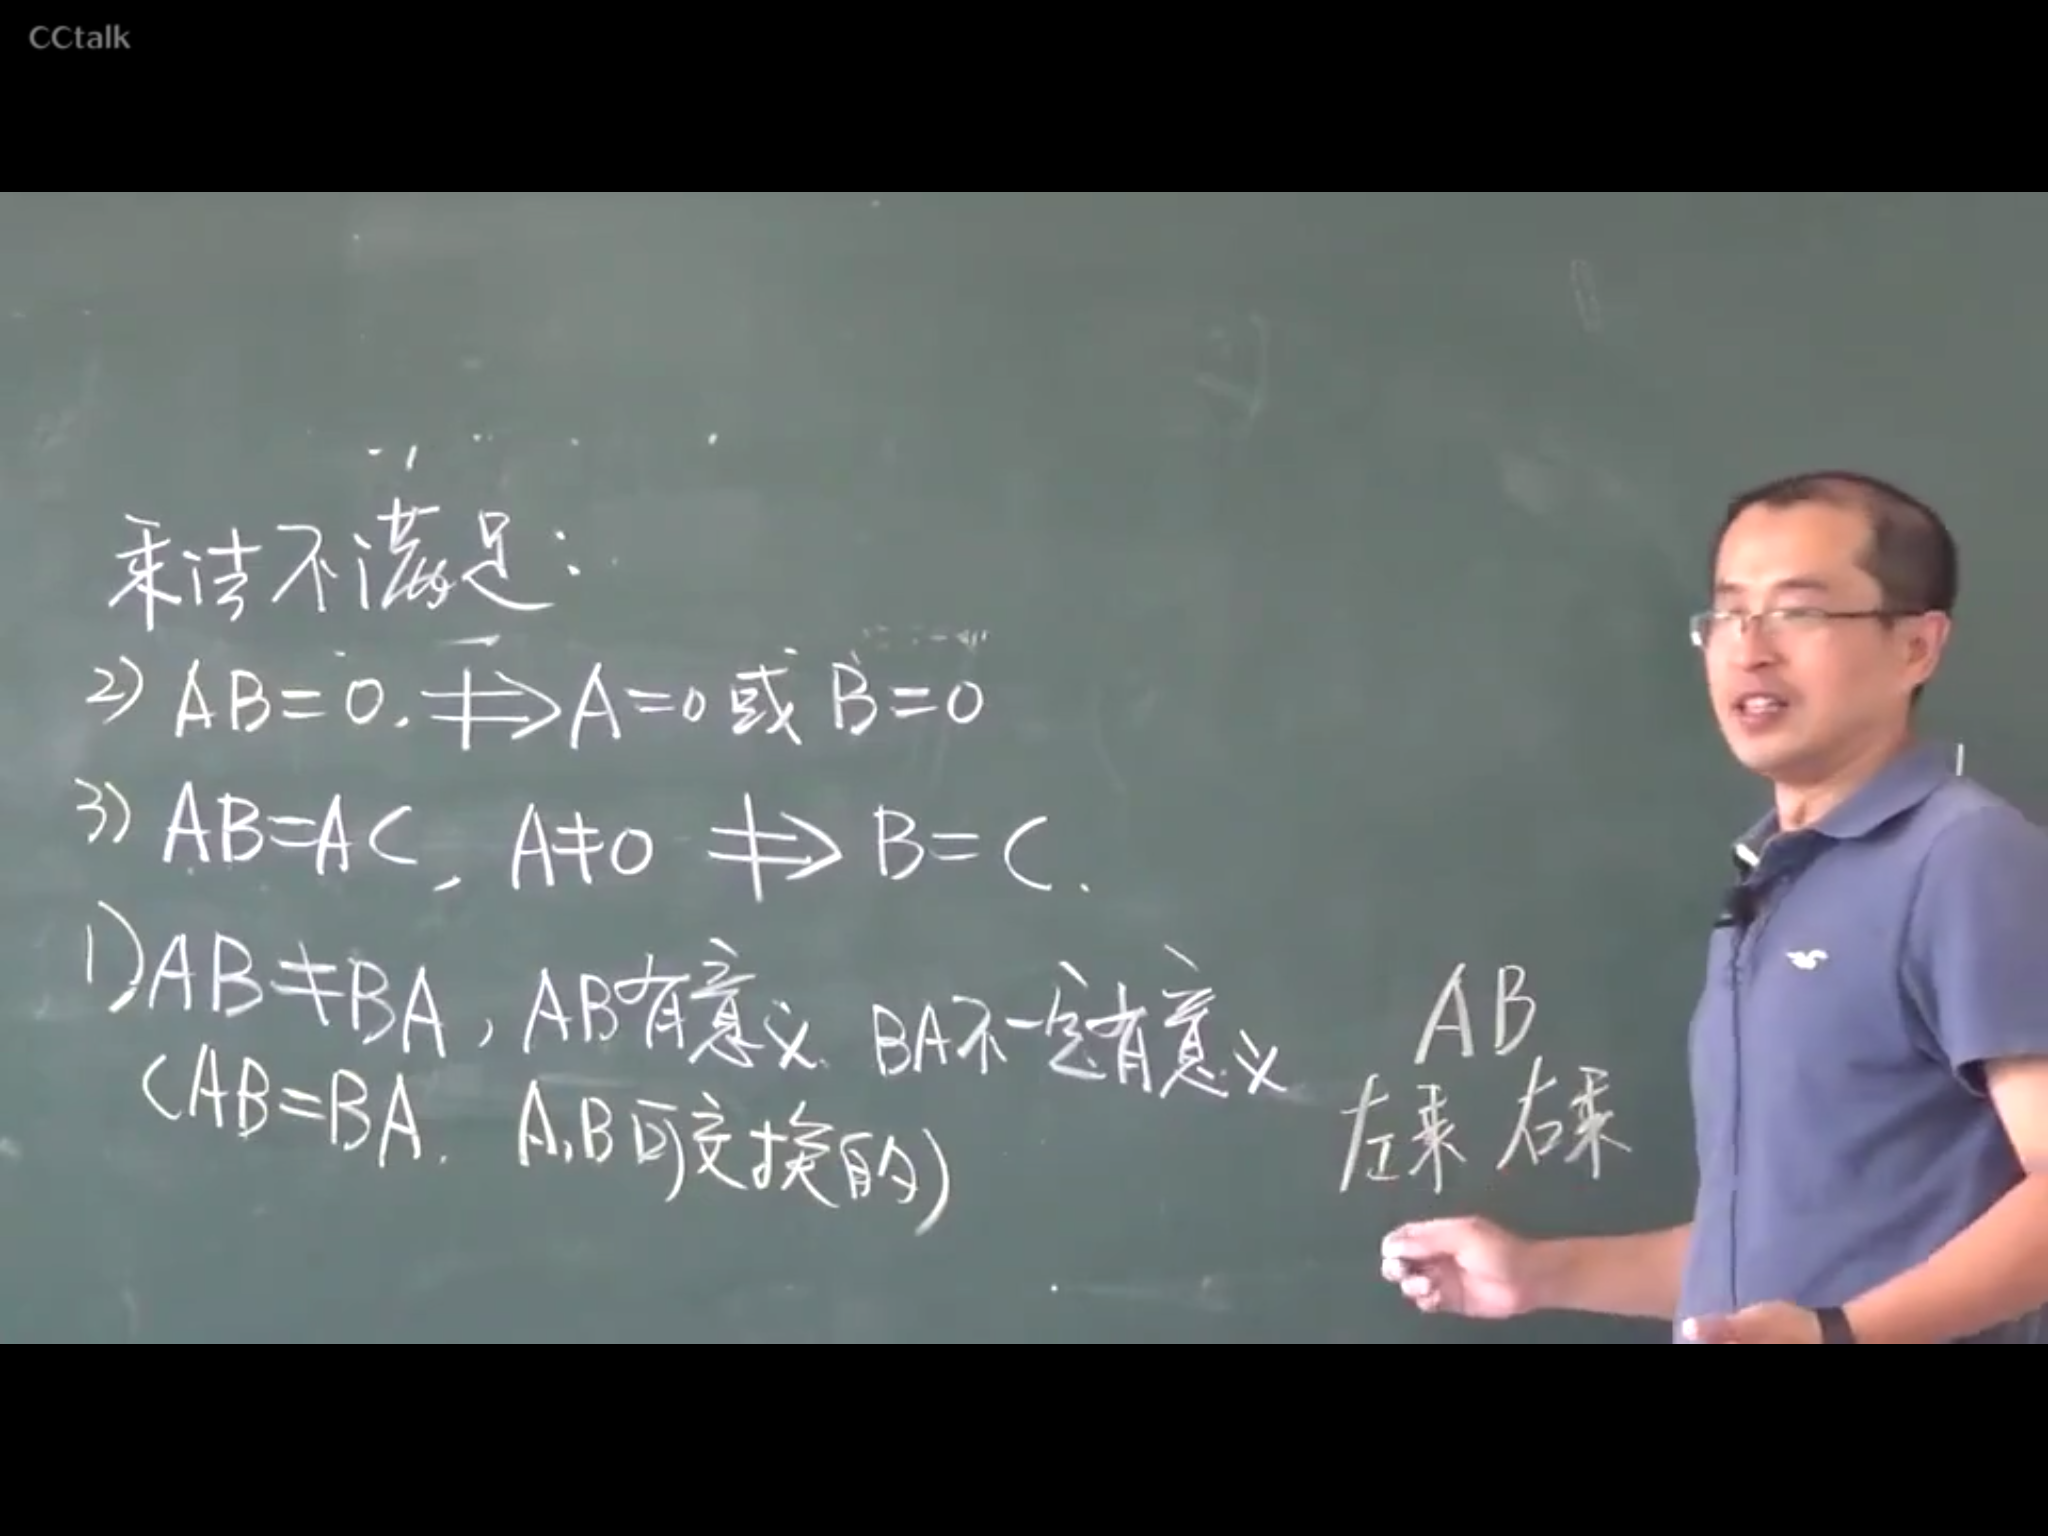 CCtalk
乘法不满足:
2) AB=0. ⇏ A=0或B=0
3) AB=AC, A≠0 ⇏ B=C.
1) AB≠BA, AB有意义 BA不一定有意义
(AB=BA. A,B可交换的)
AB
左乘 右乘